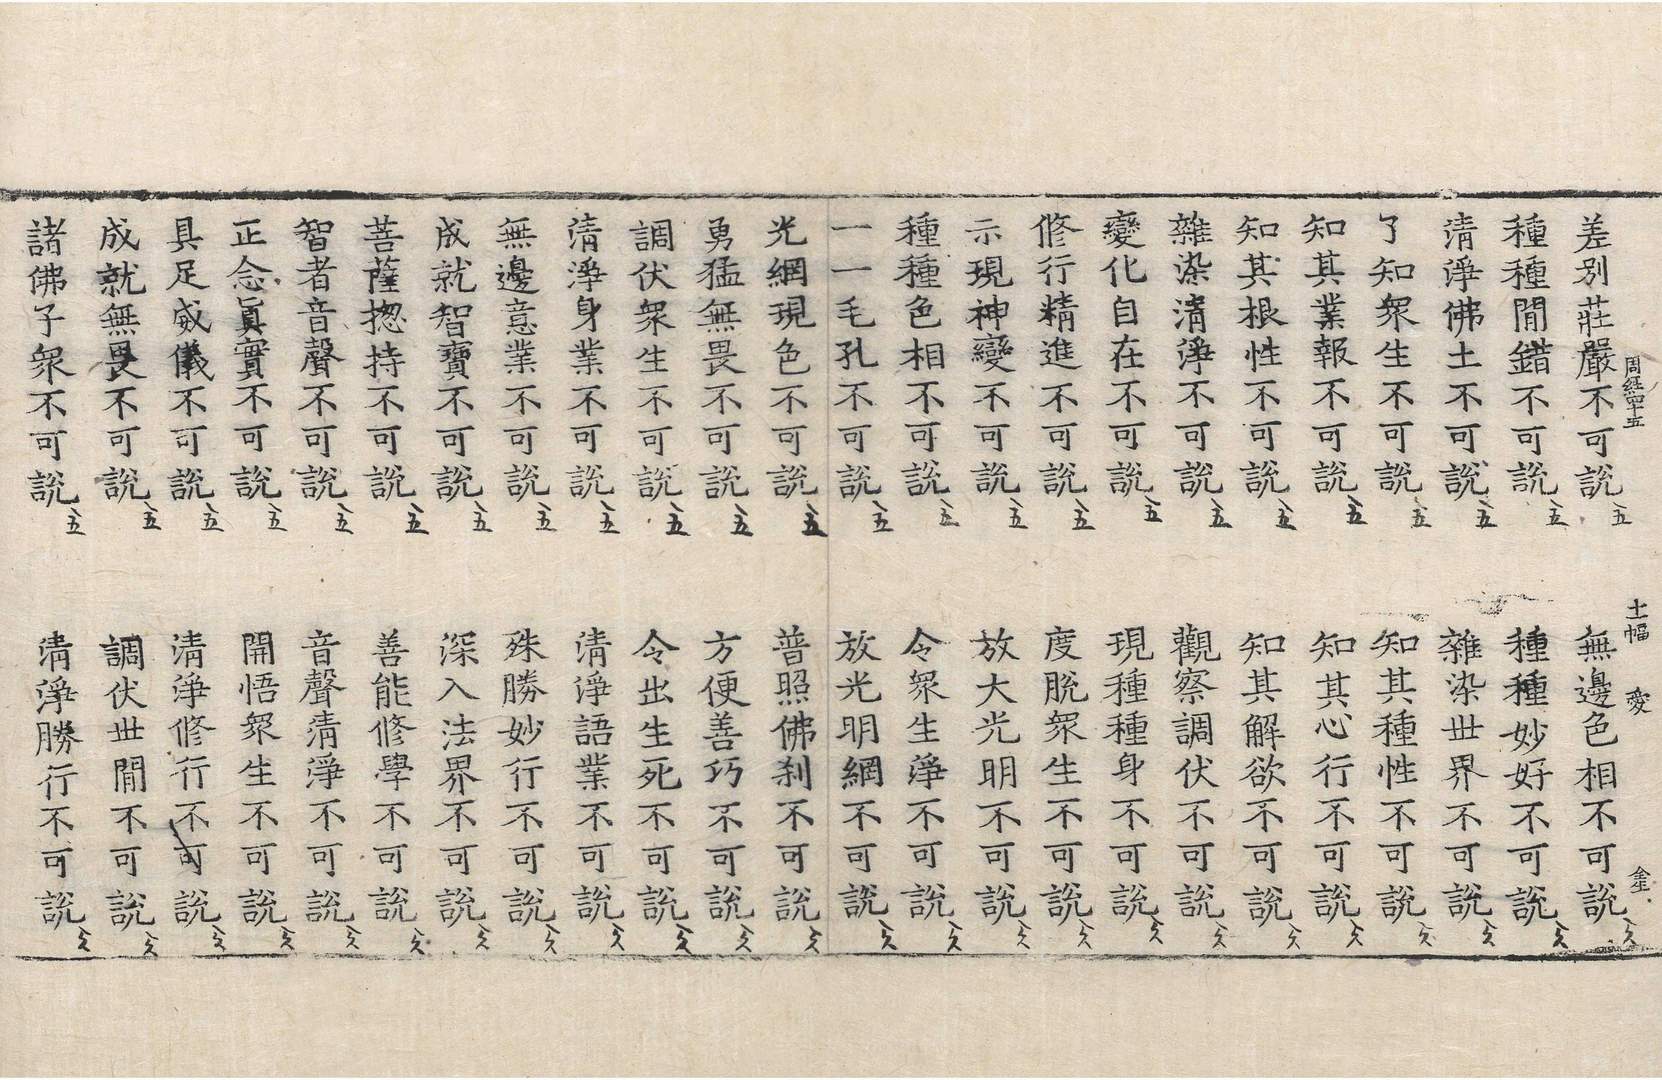 周経四十五 十一幅 愛
差別莊嚴不可說五 無邊色相不可說久
種種間錯不可說五 種種妙好不可說久
清淨佛土不可說五 雜染世界不可說久
了知眾生不可說五 知其種性不可說久
知其業報不可說五 知其心行不可說久
知其根性不可說五 知其解欲不可說久
雜染清淨不可說五 觀察調伏不可說久
變化自在不可說五 現種種身不可說久
修行精進不可說五 度脫眾生不可說久
示現神變不可說五 放大光明不可說久
種種色相不可說五 令眾生淨不可說久
一一毛孔不可說五 放光明網不可說久
光網現色不可說五 普照佛剎不可說久
勇猛無畏不可說五 方便善巧不可說久
調伏眾生不可說五 令出生死不可說久
清淨身業不可說五 清淨語業不可說久
無邊意業不可說五 殊勝妙行不可說久
成就智寶不可說五 深入法界不可說久
菩薩揔持不可說五 善能修學不可說久
智者音聲不可說五 音聲清淨不可說久
正念眞實不可說五 開悟眾生不可說久
具足威儀不可說五 清淨修行不可說久
成就無畏不可說五 調伏世間不可說久
諸佛子眾不可說五 清淨勝行不可說久